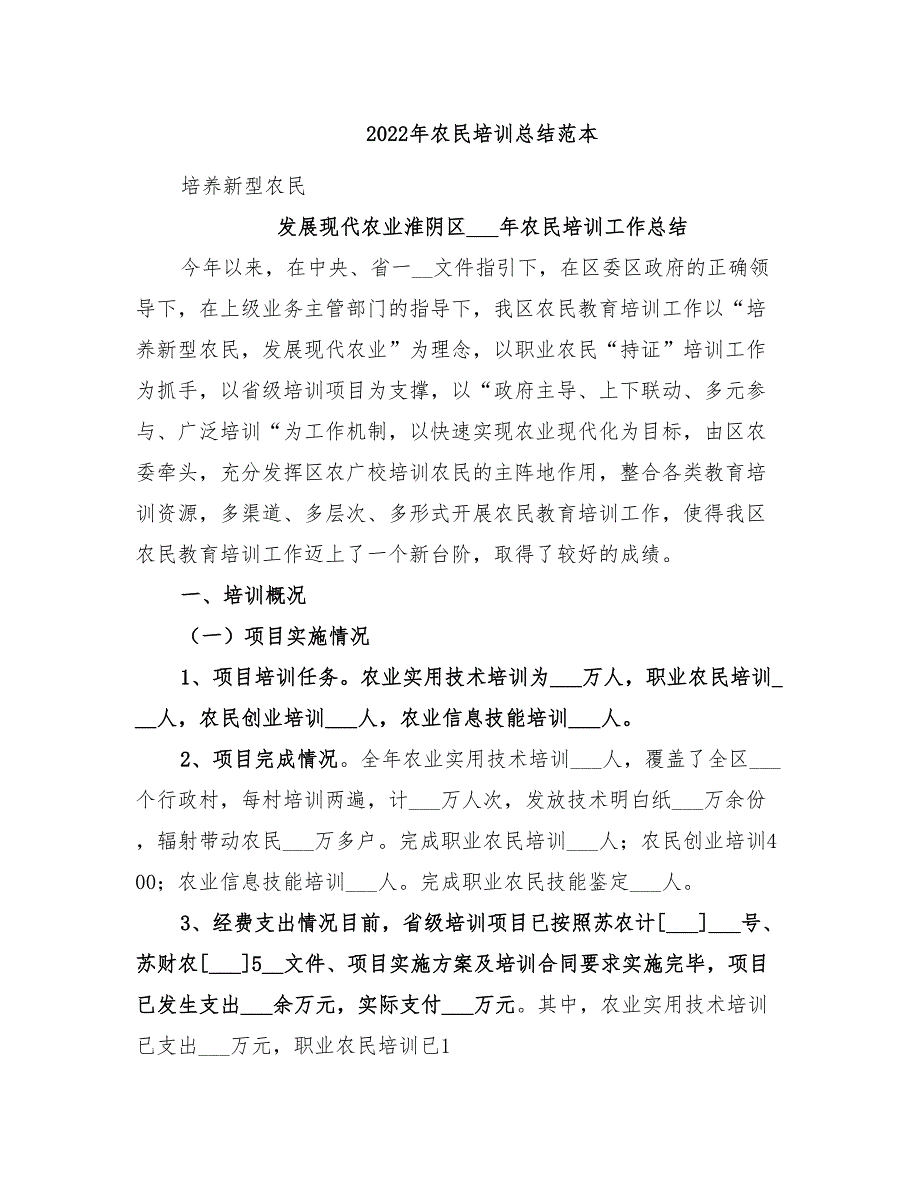 2022年农民培训总结范本
培养新型农民
发展现代农业淮阴区___年农民培训工作总结
今年以来，在中央、省一__文件指引下，在区委区政府的正确领
导下，在上级业务主管部门的指导下，我区农民教育培训工作以“培
养新型农民，发展现代农业”为理念，以职业农民“持证”培训工作
为抓手，以省级培训项目为支撑，以“政府主导、上下联动、多元参
与、广泛培训“为工作机制，以快速实现农业现代化为目标，由区农
委牵头，充分发挥区农广校培训农民的主阵地作用，整合各类教育培
训资源，多渠道、多层次、多形式开展农民教育培训工作，使得我区
农民教育培训工作迈上了一个新台阶，取得了较好的成绩。
一、培训概况
（一）项目实施情况
1、项目培训任务。农业实用技术培训为___万人，职业农民培训_
__人，农民创业培训___人，农业信息技能培训___人。
2、项目完成情况。全年农业实用技术培训___人，覆盖了全区___
个行政村，每村培训两遍，计___万人次，发放技术明白纸___万余份
，辐射带动农民___万多户。完成职业农民培训___人；农民创业培训4
00；农业信息技能培训___人。完成职业农民技能鉴定___人。
3、经费支出情况目前，省级培训项目已按照苏农计[___]___号、
苏财农[___]5__文件、项目实施方案及培训合同要求实施完毕，项目
已发生支出___余万元，实际支付___万元。其中，农业实用技术培训
已支出___万元，职业农民培训已1